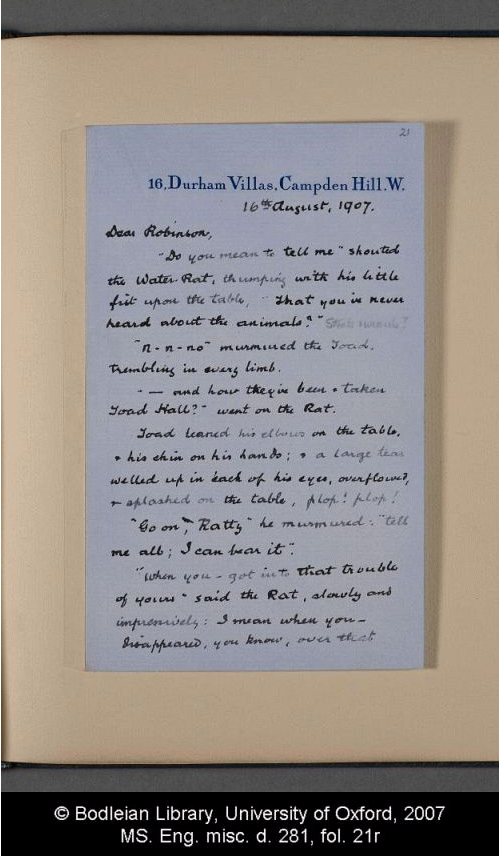 21
16, Durham Villas, Campden Hill. W.
16th August, 1907.
Dear Robinson,
"Do you mean to tell me" shouted
the Water Rat, thumping with his little
fist upon the table, "that you've never
heard about the animals?"
"N-n-no" murmured the Toad,
trembling in every limb.
"— and how they've been & taken
Toad Hall?" went on the Rat.
Toad leaned his elbows on the table,
& his chin on his hands; & a large tear
welled up in each of his eyes, overflowed,
& splashed on the table, plop! plop!
"Go on, Ratty" he murmured: "tell
me all; I can bear it".
"When you – got into that trouble
of yours" said the Rat, slowly and
impressively: I mean when you –
disappeared, you know, over that
© Bodleian Library, University of Oxford, 2007
MS. Eng. misc. d. 281, fol. 21r